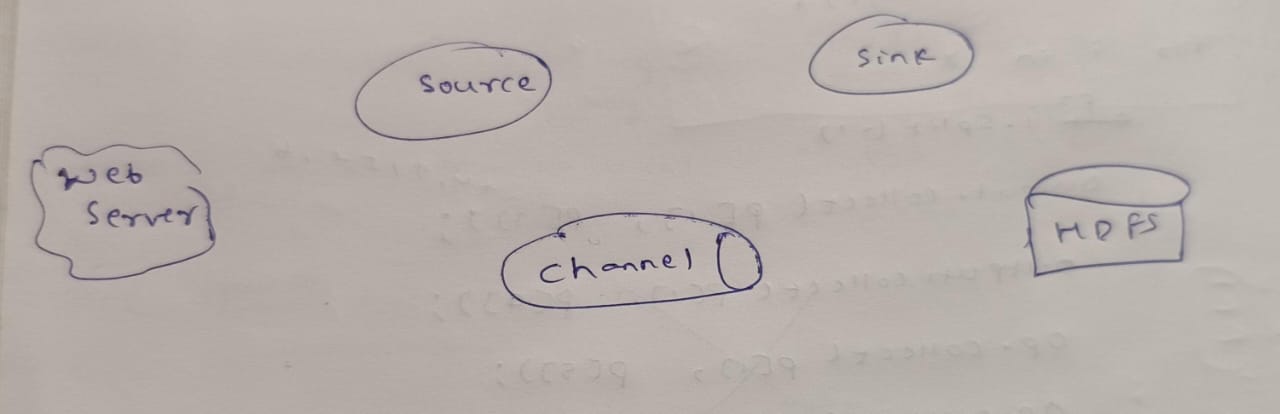 Source
Sink
Web
Server
Channel
HDFS